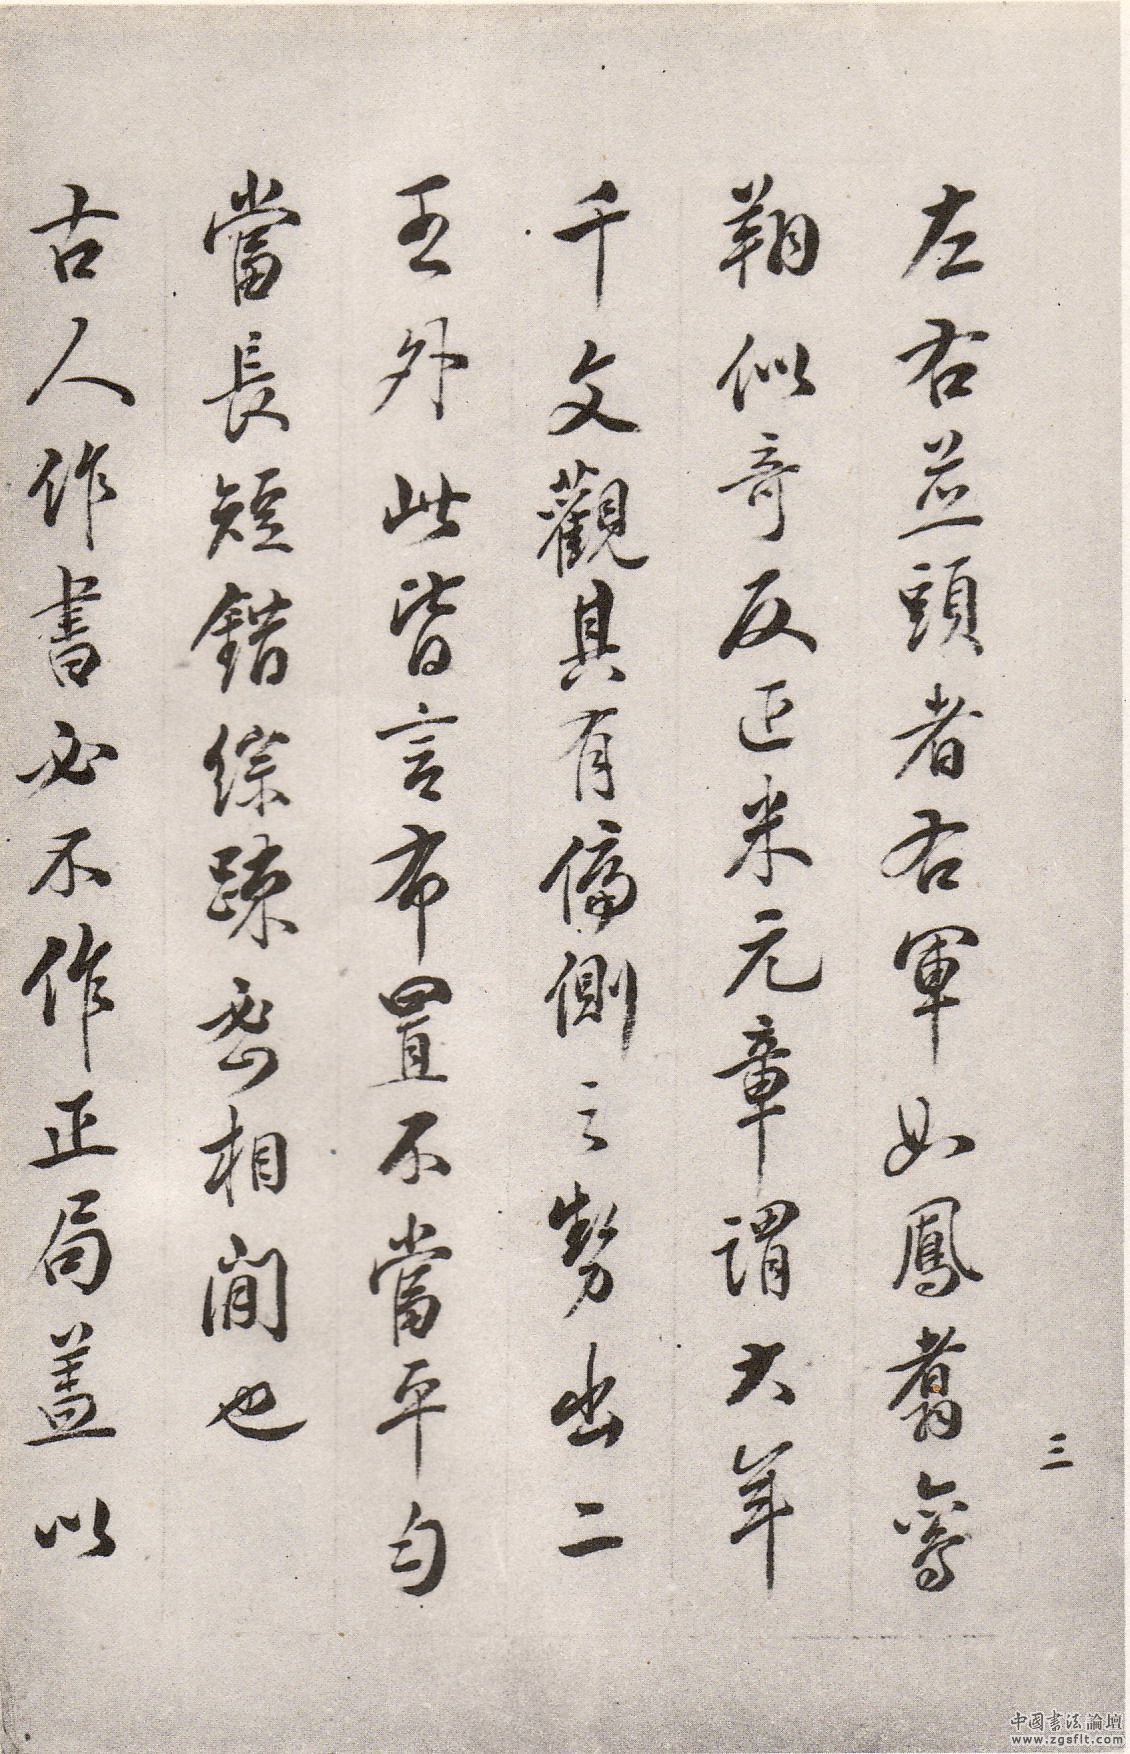 左右並頭者右軍如鳳翥鸞
翔似奇反正米元章謂大年
千文觀其有偏側之勢出二
王外此皆言布置不當平勻
當長短錯綜疎密相間也
古人作書必不作正局蓋以
三
中国书法論壇
www.zgsflt.com